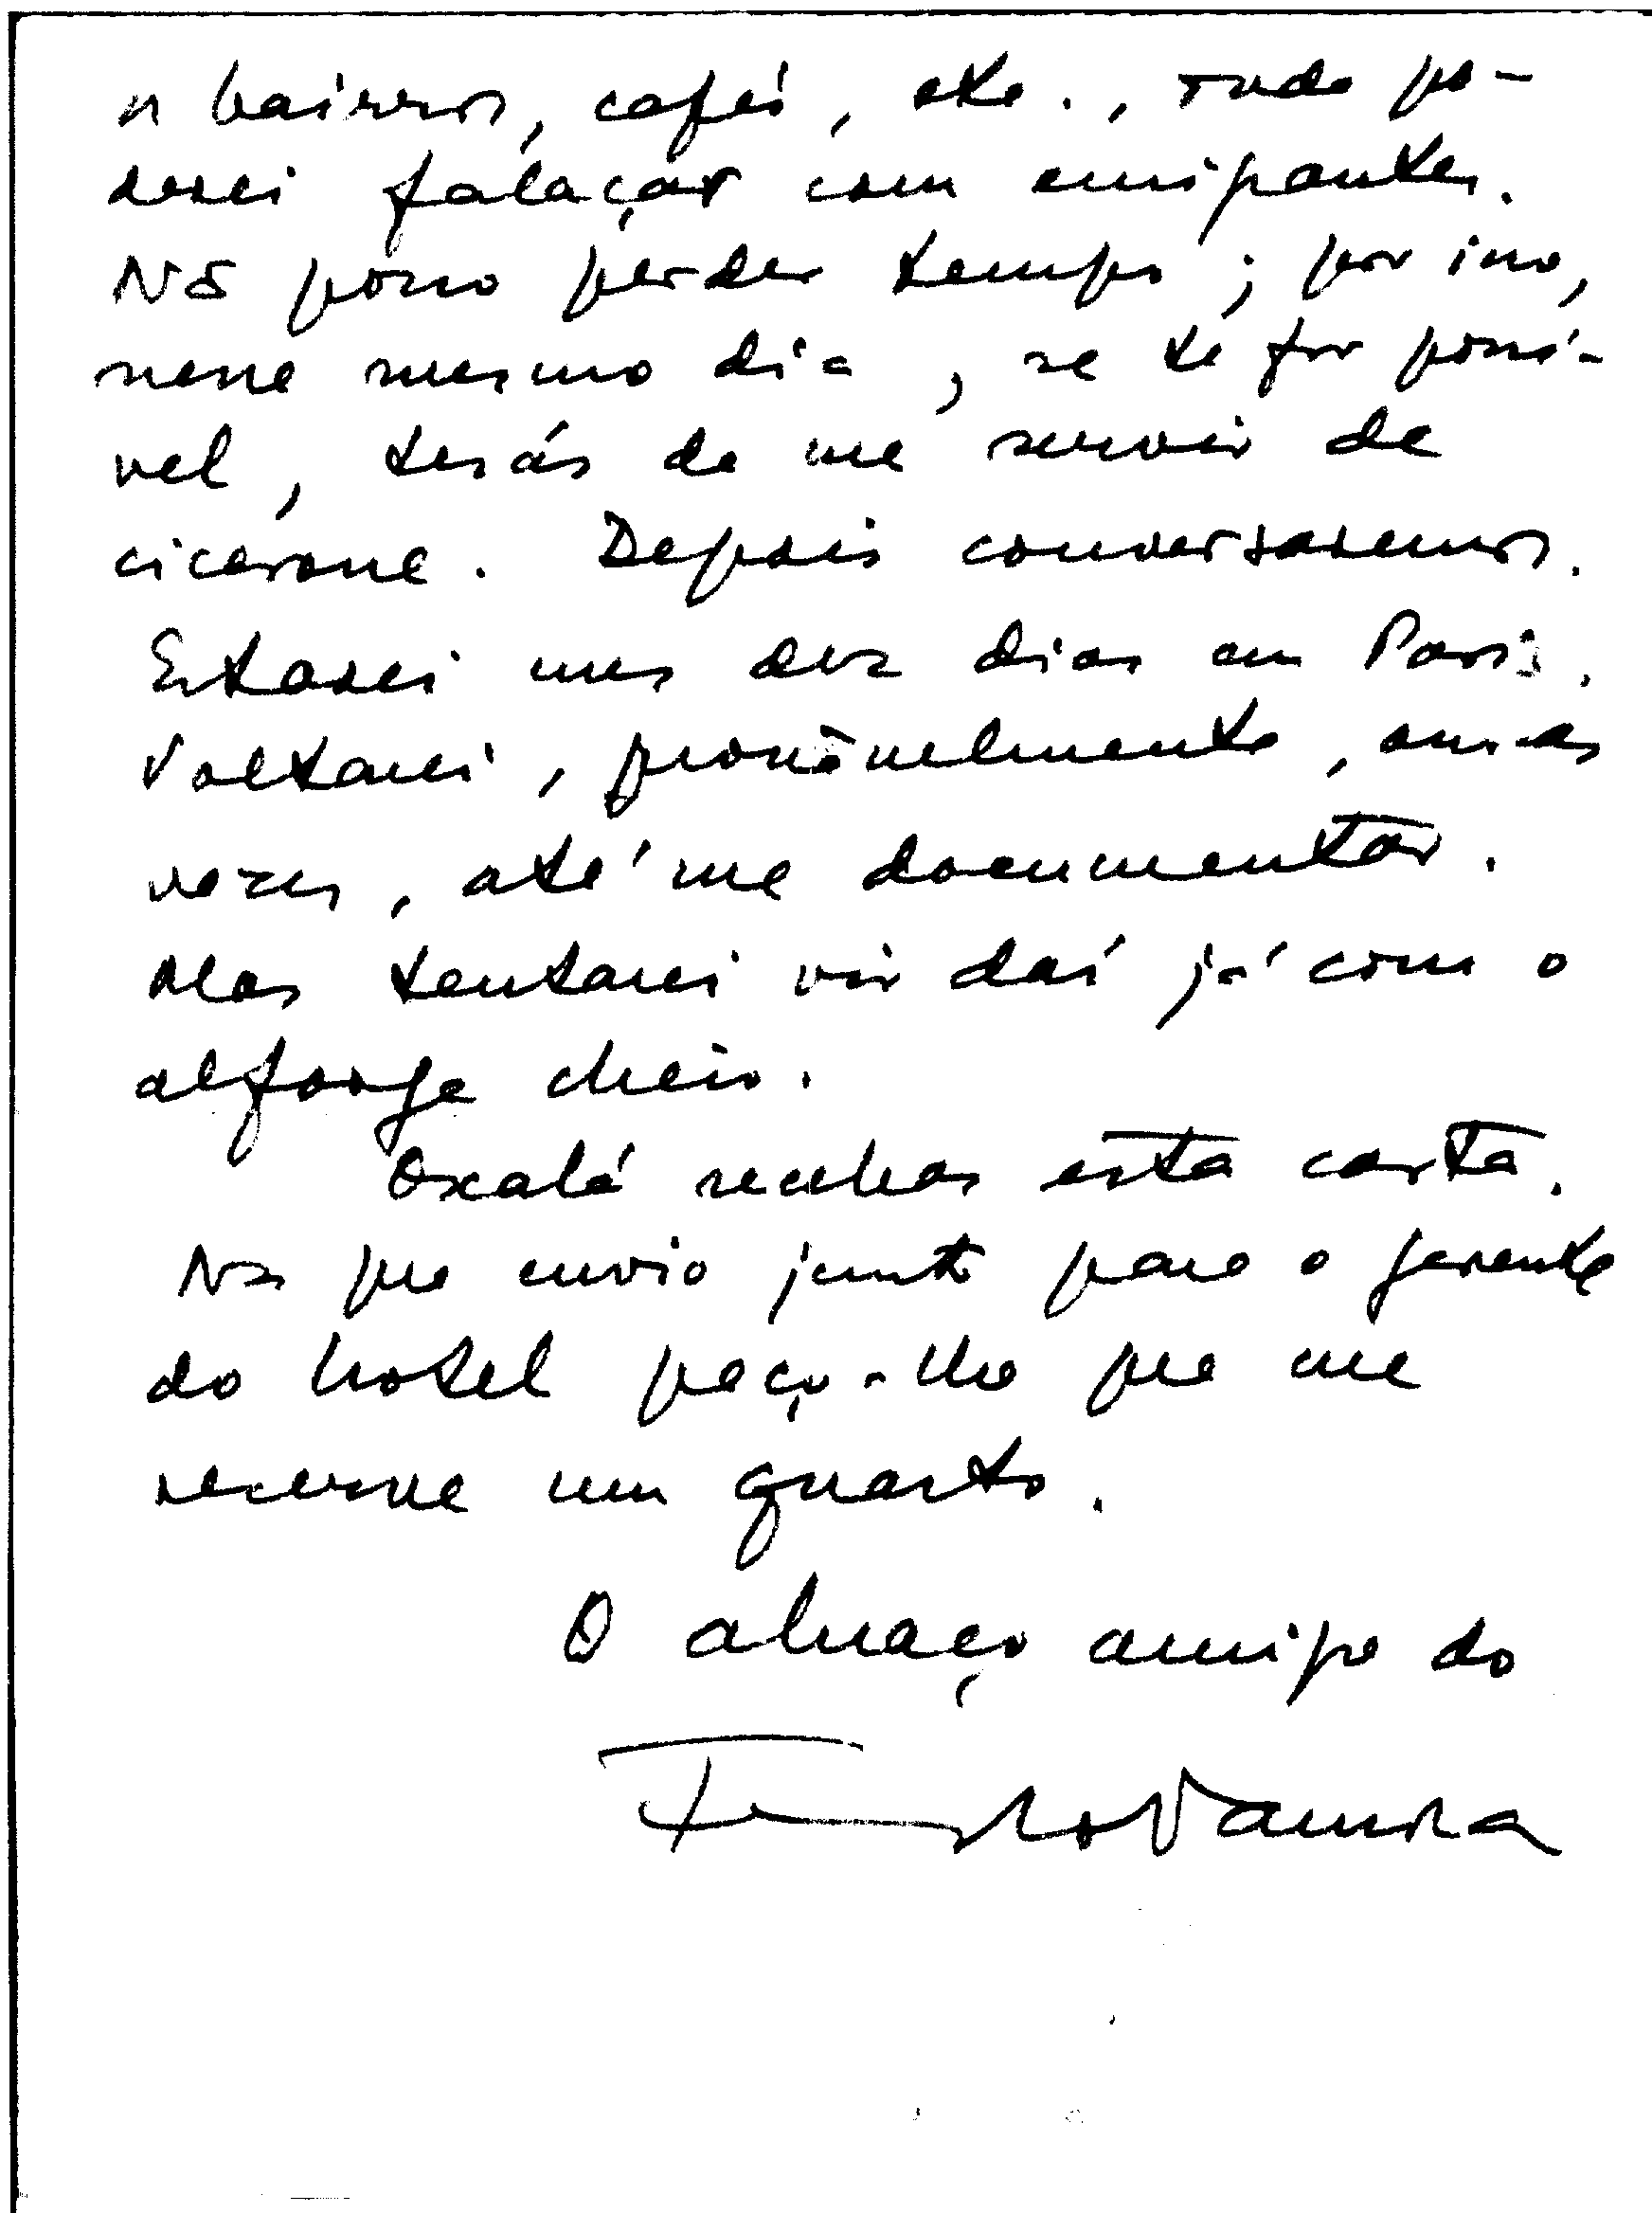 os bairros, cafés, etc., onde po-
derei falaçar com emigrantes.
Não posso perder tempo; por isso,
nesse mesmo dia, se te for possí-
vel, terás de me servir de
cicerone. Depois conversaremos.
Estarei uns dez dias em Paris.
Voltarei, provàvelmente, outras
vezes, até me documentar.
Mas tentarei vir daí já com o
alforge cheio.
Oxalá recebas esta carta.
Na que envio junto para o gerente
do hotel peço-lhe que me
reserve um quarto.
O abraço amigo do
Fernando Namora